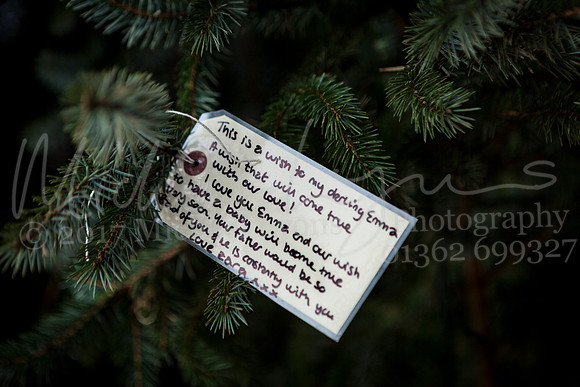 This is a wish to my darling Emma
A wish that will come true
with our love!
I love you Emma and our wish
to have a baby will become true
very soon. Your father would be so
of you & is constantly with you
Love
xxx
© 2017
Photography
01362 699327